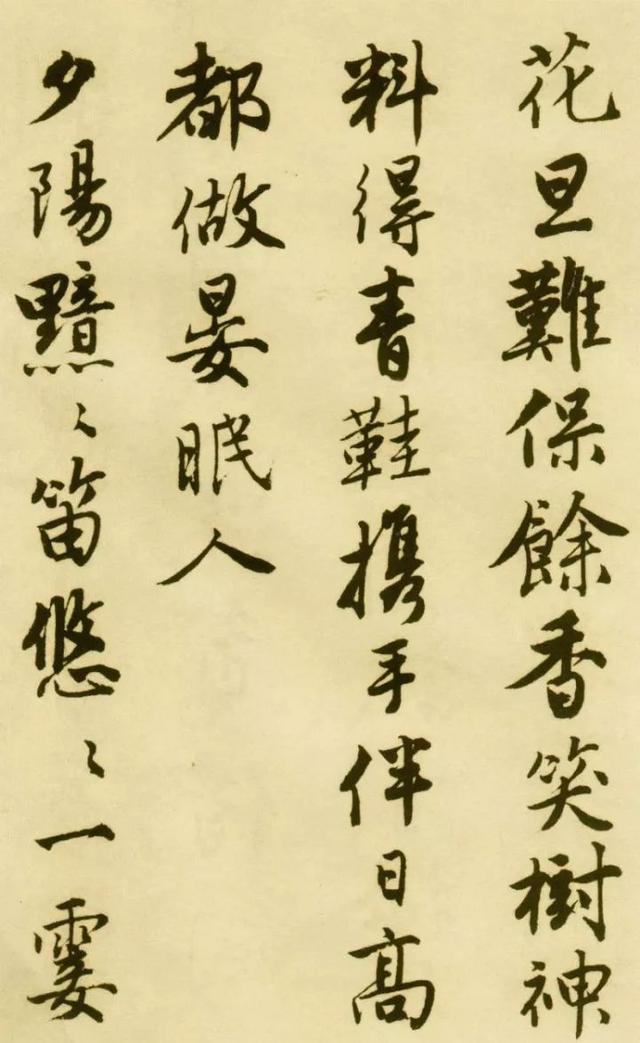 花旦難保餘香笑樹神
料得青鞋攜手伴日高
都做晏眠人
夕陽黯〻笛悠〻一霎